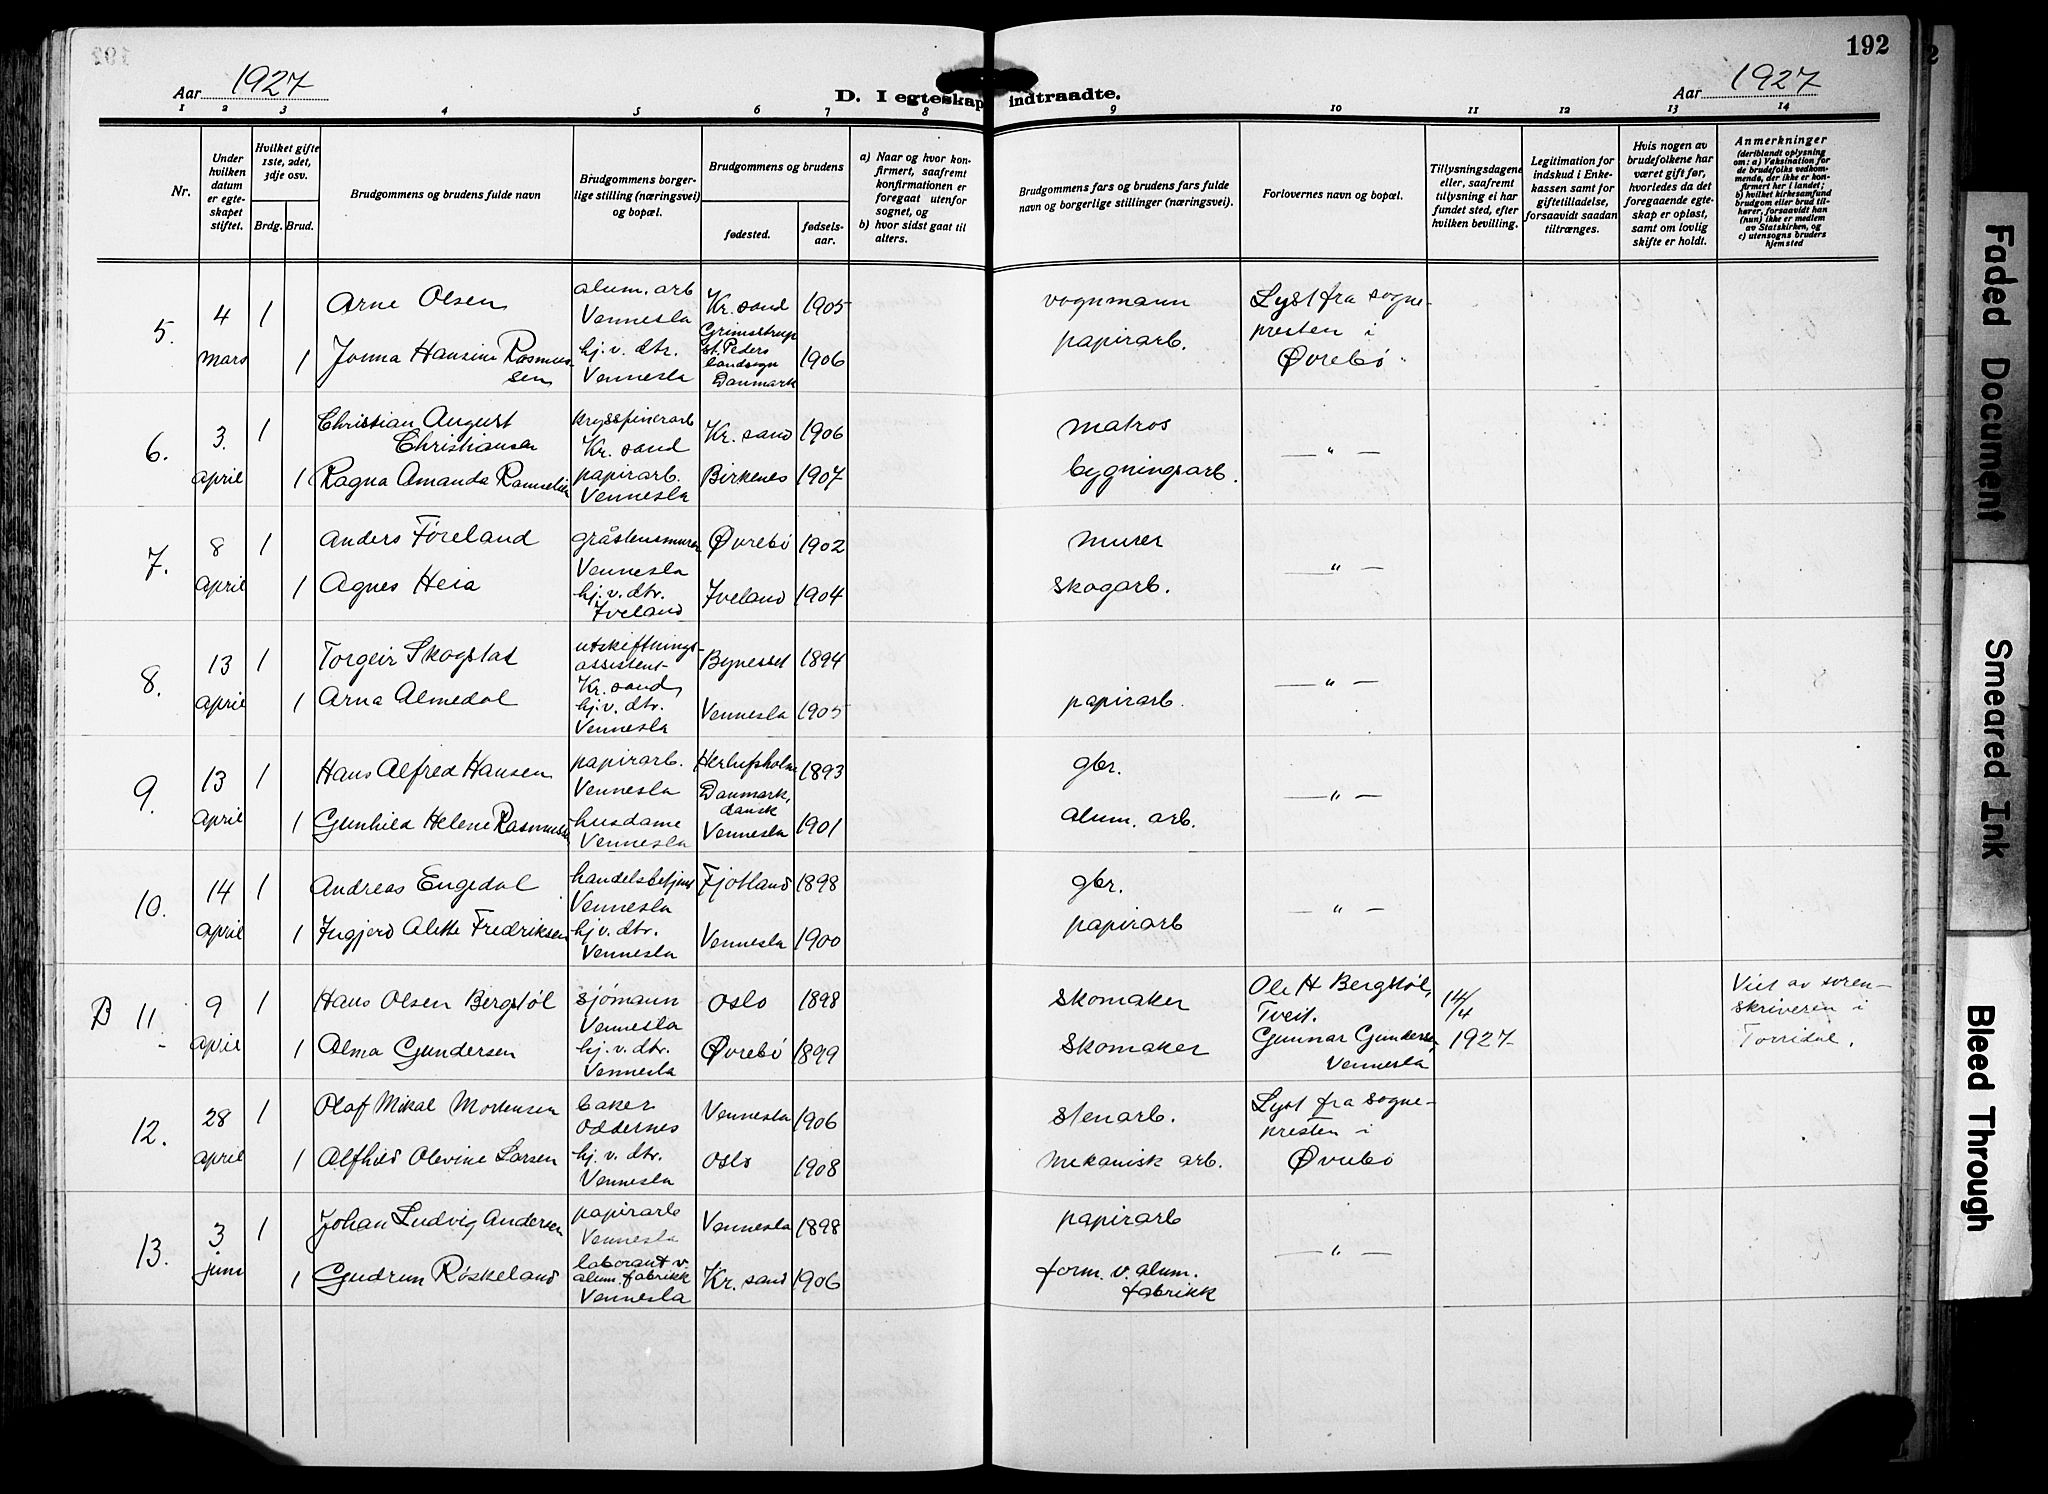 192
Aar 1927
D. I egteskap indtraadte.
Aar 1927
1 2 3 4 5 6 7 8 9 10 11 12 13 14
Nr.
Under hvilken datum er egteskapet stiftet.
Hvilket gifte 1ste, 2det, 3dje osv.
Brdg. Brud.
Brudgommens og brudens fulde navn
Brudgommens borgerlige stilling (næringsvei) og bopæl.
Brudgommens og brudens
fødested.
fødselsaar.
a) Naar og hvor konfirmert, saafremt konfirmationen er foregaat utenfor sognet, og
b) hvor sidst gaat til alters.
Brudgommens fars og brudens fars fulde navn og borgerlige stillinger (næringsvei).
Forlovernes navn og bopæl.
Tillysningsdagene eller, saafremt tillysning ei har fundet sted, efter hvilken bevilling.
Legitimation for indskud i Enkekassen samt for giftetilladelse, forsaavidt saadan tiltrænges.
Hvis nogen av brudefolkene har været gift før, hvorledes da det foregaaende egteskap er opløst, samt om lovlig skifte er holdt.
Anmerkninger
(deriblandt oplysning om: a) Vaksination for de brudefolks vedkommende, der ikke er konfirmert her i landet; b) hvilket kirkesamfund brudgom eller brud tilhører, forsaavidt han (hun) ikke er medlem av Statskirken, og c) utensogns bruders hjemsted
5. 4 mars 1 Arne Olsen alum. arb Vennesla Kr. sand 1905 vognmann Lyst fra sogne-
presten i
Øvrebø.
1 Jonna Hansine Rasmus-
sen hj. v. dtr. Vennesla Grimstrup
st. Peders
landsogn
Danmark 1906 papirarb.
6. 3. april 1 Christian August
Christiansen krysspinerarb Kr. sand Kr. sand 1906 matros — " —
1 Ragna Amanda Ramselien papirarb. Vennesla Birkenes 1907 bygningsarb.
7. 8 april 1 Anders Föreland gråstensmurer Vennesla Øvrebö 1902 murer — " —
1 Agnes Heia hj. v. dtr. Iveland Iveland 1904 skogarb.
8. 13 april 1 Torgeir Skogstad utskiftnings-
assistent
Kr. sand Bynesset 1894 — " —
1 Arna Almedal hj. v. dtr. Vennesla Vennesla 1905 papirarb.
9. 13 april 1 Hans Alfred Hansen papirarb. Vennesla Herlufsholm
Danmark,
dansk 1893 gbr. — " —
1 Gunhild Helene Rasmussen husdame Vennesla Vennesla 1901 alum. arb.
10. 14 april 1 Andreas Engedal handelsbetjent Vennesla Fjotland 1898 gbr. — " —
1 Ingjerd Alette Fredriksen hj v. dtr. Vennesla Vennesla 1900 papirarb
B 11 9 april 1 Hans Olsen Bergstøl sjömann Vennesla Oslo 1898 skomaker Ole H Bergstøl,
Tveit. 14/4 1927 Viet av soren-
skriveren i
Torridal.
1 Alma Gundersen hj. v. dtr. Vennesla Øvrebö 1899 skomaker Gunnar Gundersen,
Vennesla
12. 28 april 1 Olaf Mikal Mortensen baker Oddernes Vennesla 1906 stenarb. Lyst fra sogne-
presten i
Øvrebø
1 Alfhild Olevine Larsen hj. v. dtr. Vennesla Oslo 1908 mekanisk arb.
13. 3 juni 1 Johan Ludvig Andersen papirarb Vennesla Vennesla 1898 papirarb — " —
1 Gudrun Røskeland laborant v.
alum. fabrikk
Vennesla Kr. sand 1906 form. v. alum.
fabrikk
Faded Document
Smeared Ink
Bleed Through